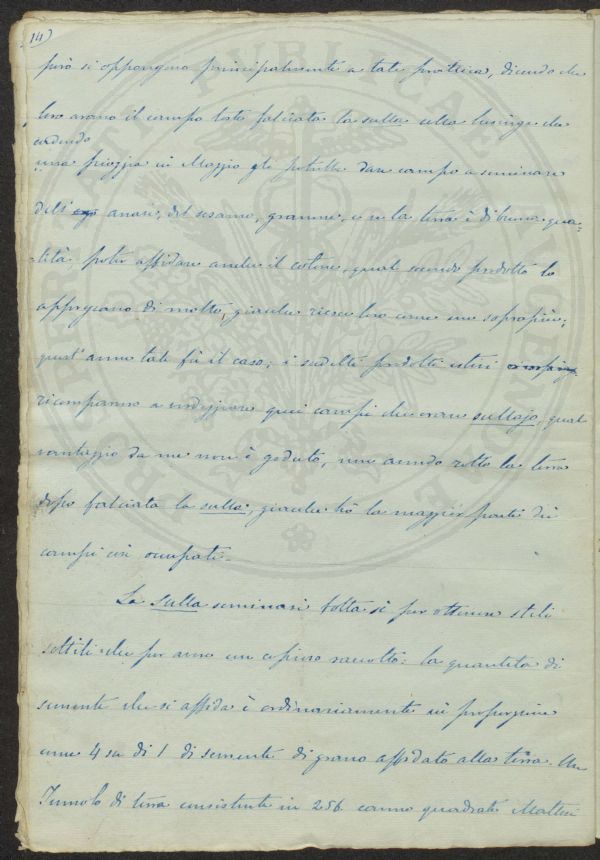 14)
però si oppongono principalmente a tale prattica, dicendo che
loro arano il campo tosto falciata la sulla colla lusinga che
cadendo
una pioggia in Maggio gli potrebbe dare campo a seminare
dell' anasi, del sesamo, granone, e se la terra è di buona qua-
lità poter affidare anche il cotone, qual secondo prodotto lo
apprezzano di molto, giacchè riesce loro come un soprapiù;
quest' anno tale fù il caso; i sudetti prodotti estivi
ricompanno a vedeggiare quei campi che erano sullajo, qual
vantaggio da me non è goduto, non avendo rotto la terra
dopo falciata la sulla, giacchè hò la maggior parte dei
campi così occupati.
La Sulla seminasi folta sì per ottenere steli
sottili che per avere un copioso raccolto: la quantità di
semente che si affida è ordinariamente in proporzione
come 4 sa di 1 di semente di grano affidato alla terra. Un
Tumolo di terra consistente in 256 canne quadrate Maltesi